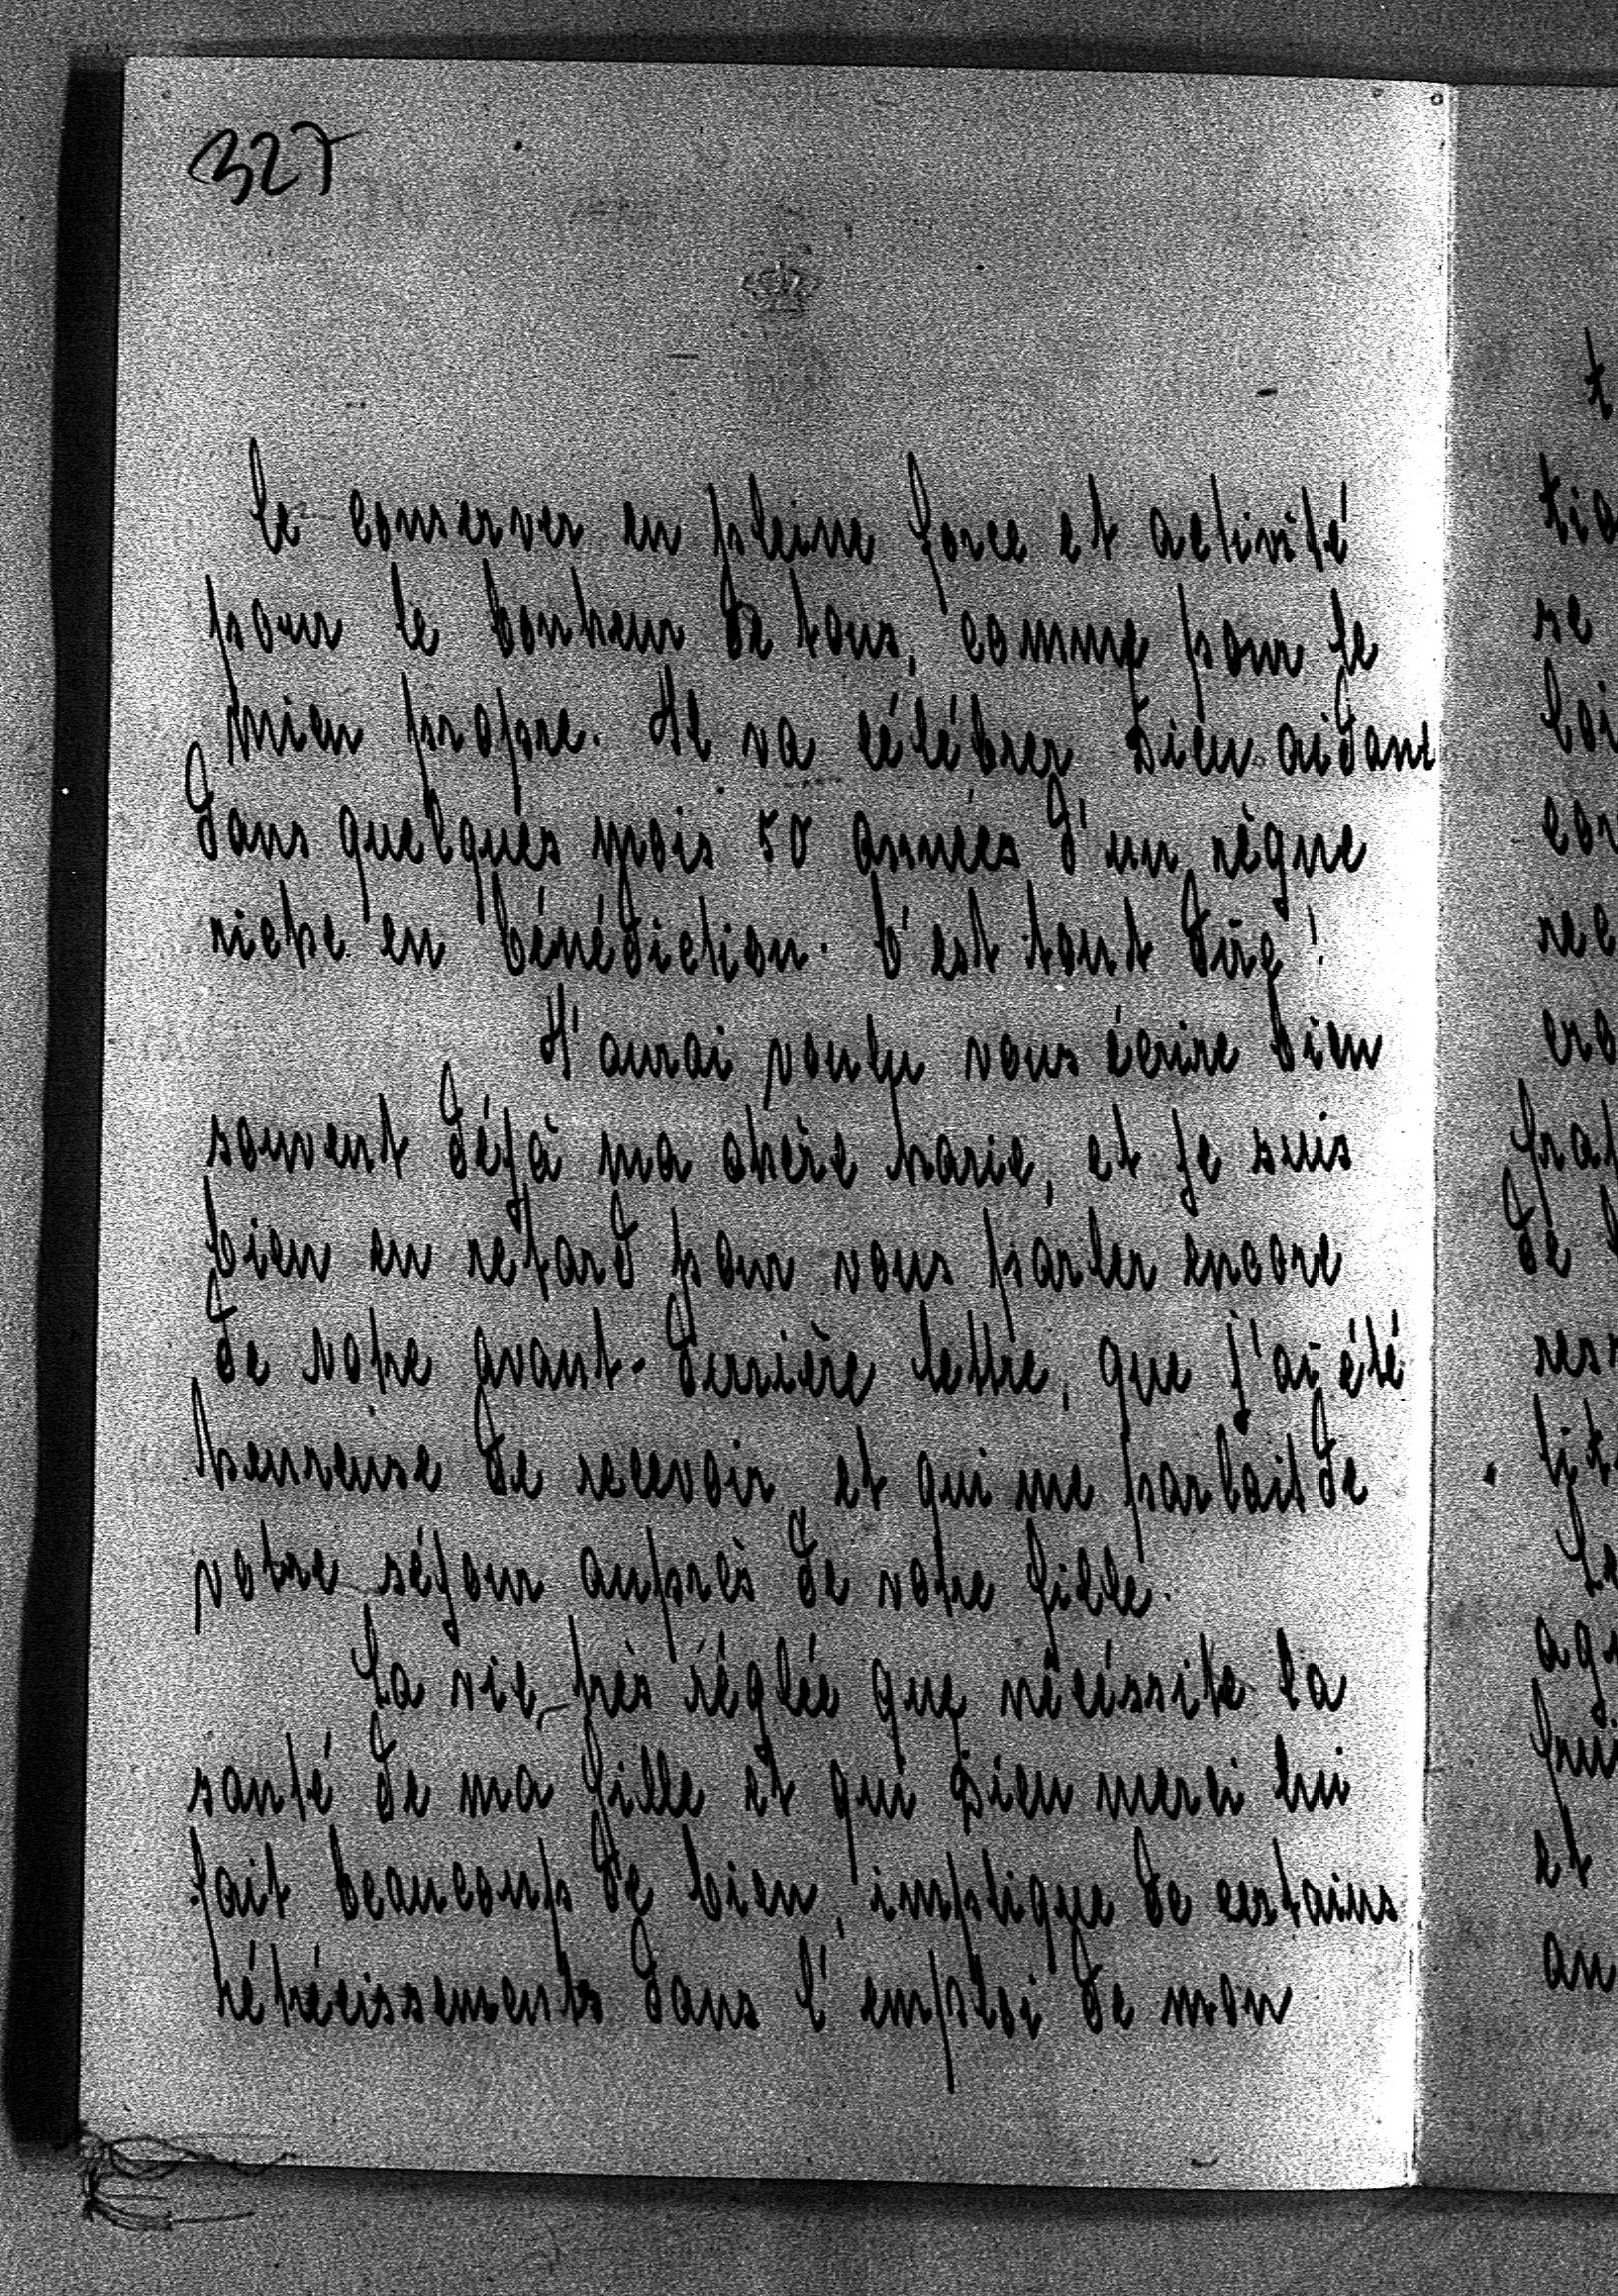 327
le conserver en pleine force et activité
pour le bonheur de tous, comme pour le
mien propre. Il va célébrer Dieu aidant
dans quelques mois 50 années d'un règne
riche en bénédiction. C'est tout dire!
J'aurai voulu vous écrire bien
souvent déjà ma chère Marie, et je suis
bien en retard pour vous parler encore
de votre avant-dernière lettre, que j'ai été
heureuse de recevoir, et qui me parlait de
votre séjour auprès de votre fille.
La vie très réglée que nécéssite la
santé de ma fille et qui Dieu merci lui
fait beaucoup de bien, implique de certains
rétrécissements dans l'emploi de mon